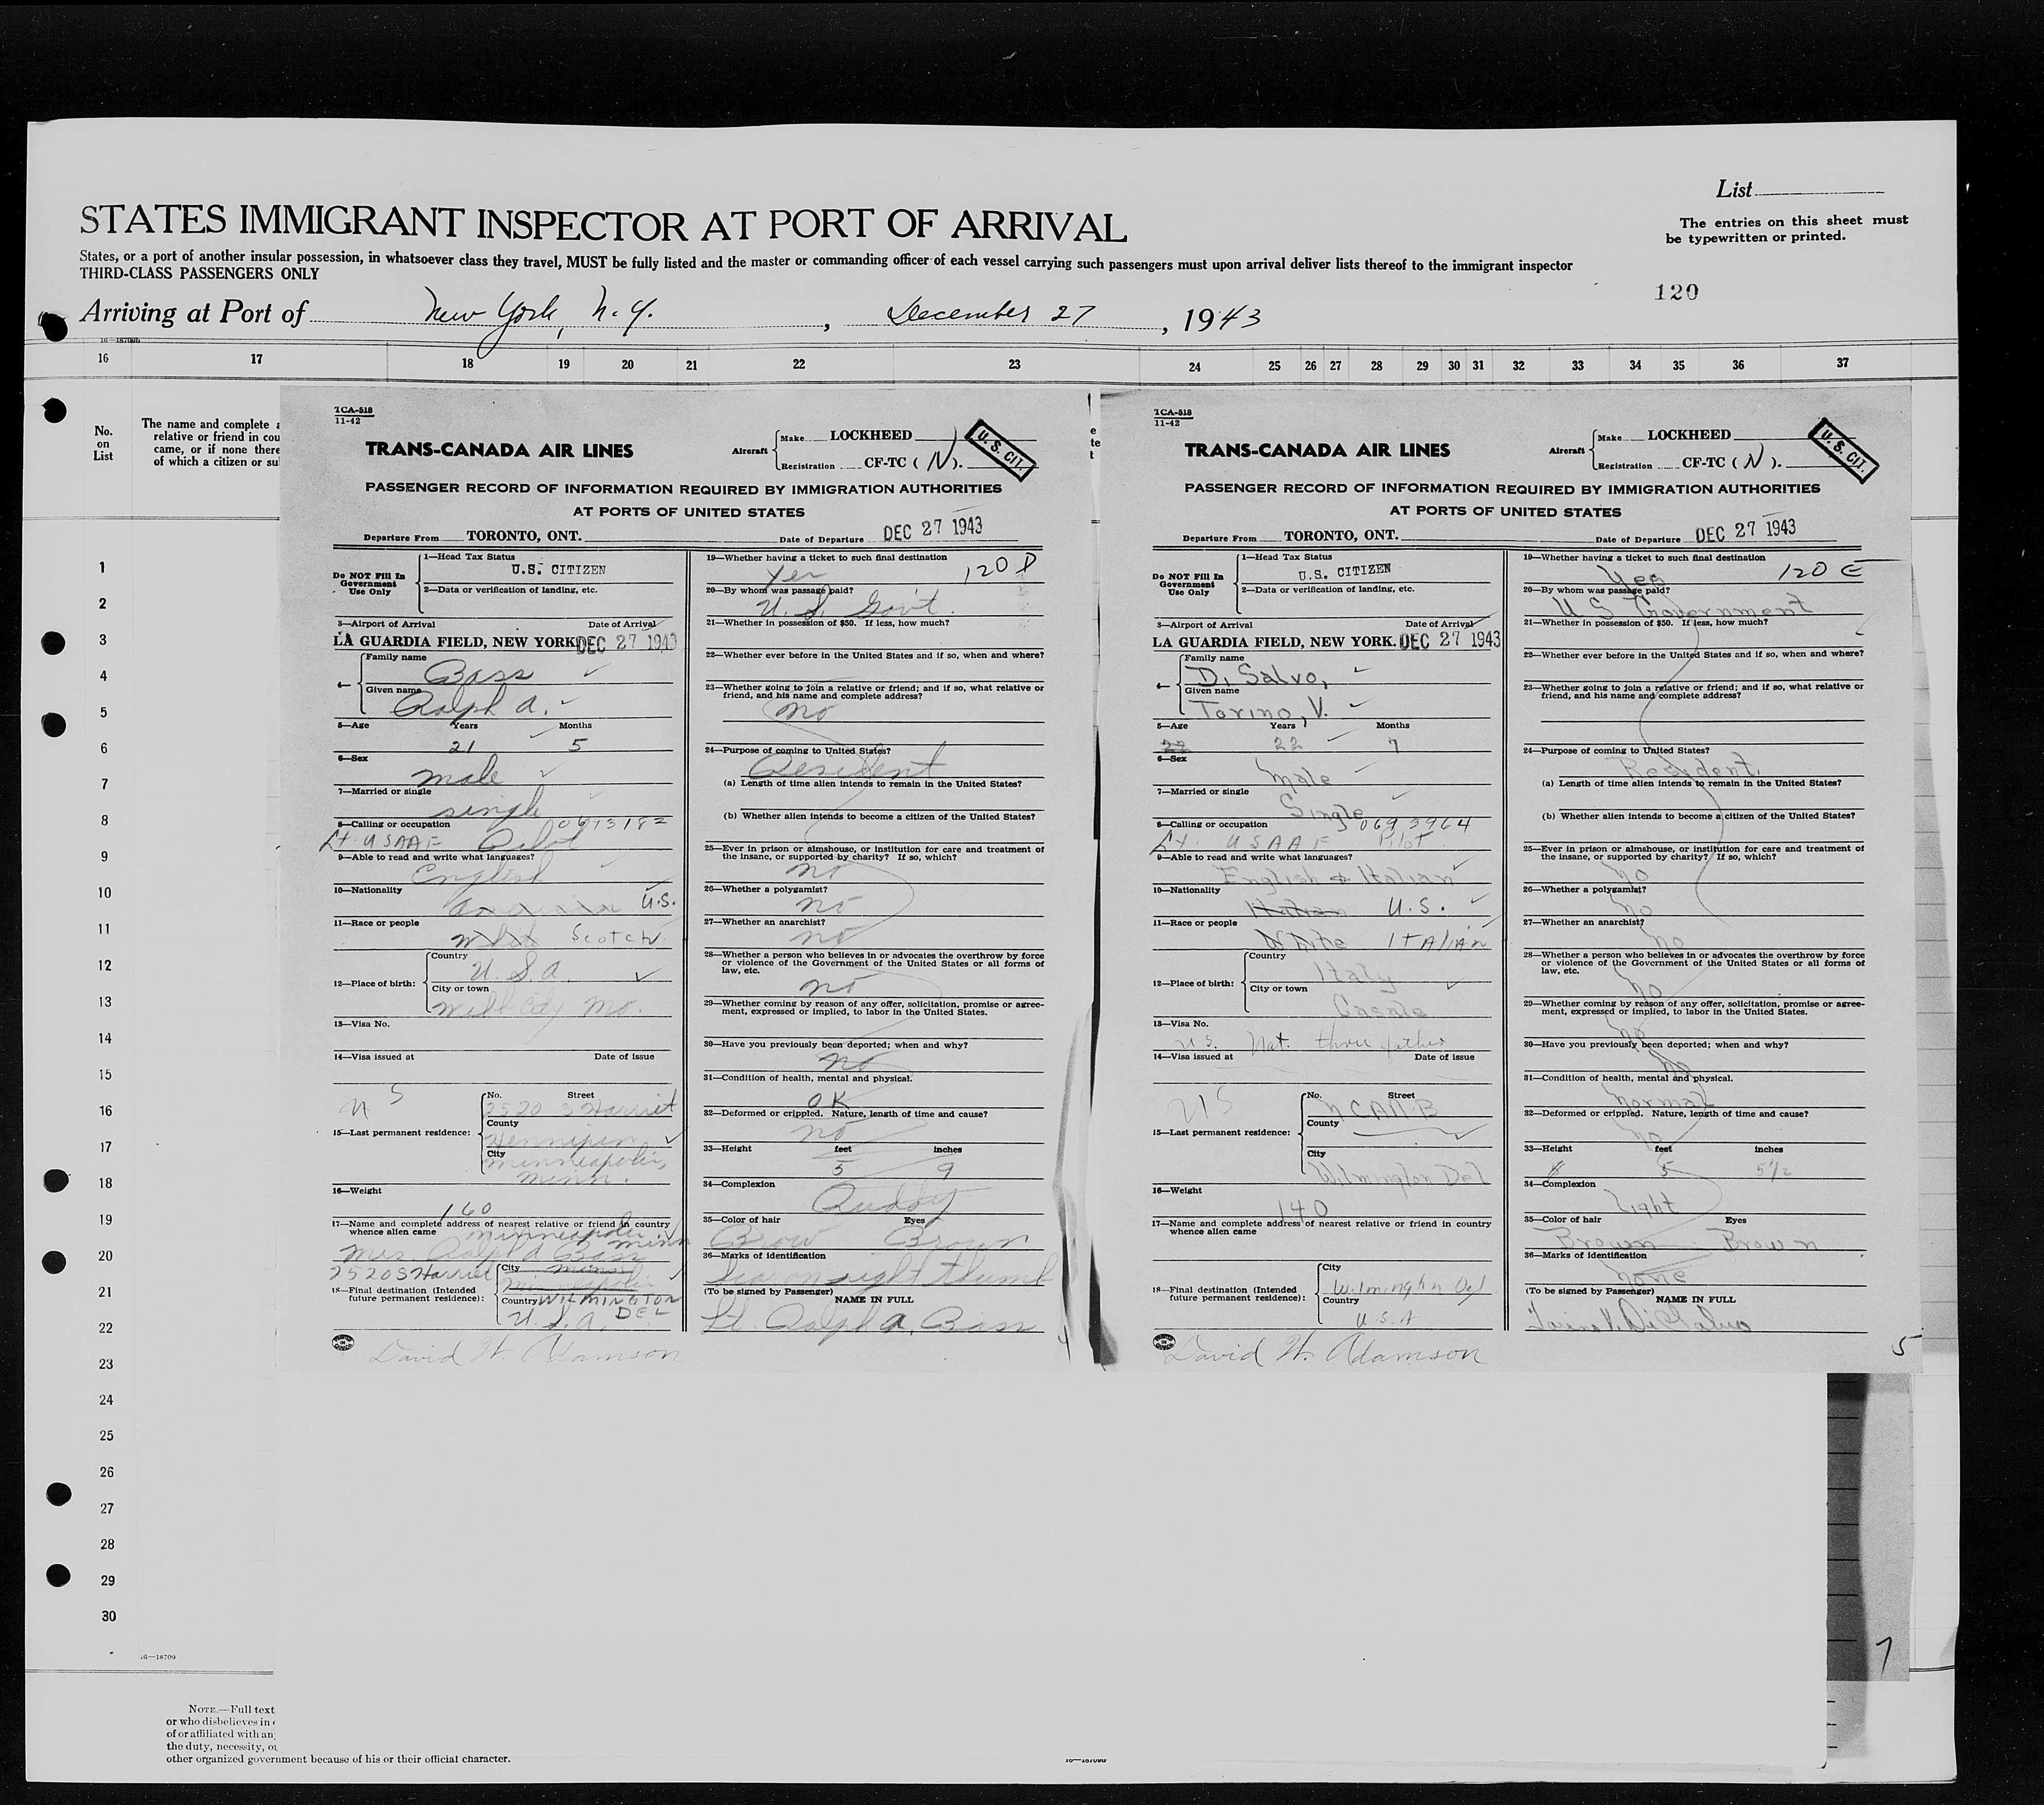 List
STATES IMMIGRANT INSPECTOR AT PORT OF ARRIVAL
The entries on this sheet must
be typewritten or printed.
States, or a port of another insular possession, in whatsoever class they travel, MUST be fully listed and the master or commanding officer of each vessel carrying such passengers must upon arrival deliver lists thereof to the immigrant inspector
THIRD-CLASS PASSENGERS ONLY
120
Arriving at Port of New York, N.Y., December 27, 1943
16 17 18 19 20 21 22 23 24 25 26 27 28 29 30 31 32 33 34 35 36 37
No.
on
List
The name and complete a
relative or friend in cou
came, or if none there
of which a citizen or su
1
2
3
4
5
6
7
8
9
10
11
12
13
14
15
16
17
18
19
20
21
22
23
24
25
26
27
28
29
30
16—18709
NOTE.—Full text
or who disbelieves in
of or affiliated with an
the duty, necessity, o
other organized government because of his or their official character.
TCA-518
11-42
TRANS-CANADA AIR LINES
Aircraft Make LOCKHEED
Registration CF-TC (N).
U.S. CIT.
PASSENGER RECORD OF INFORMATION REQUIRED BY IMMIGRATION AUTHORITIES
AT PORTS OF UNITED STATES
Departure From TORONTO, ONT. Date of Departure DEC 27 1943
Do NOT Fill In
Government
Use Only
1—Head Tax Status
U.S. CITIZEN
2—Data or verification of landing, etc.
3—Airport of Arrival Date of Arrival
LA GUARDIA FIELD, NEW YORK DEC 27 1943
4— Family name
Bass
Given name
Ralph A.
5—Age Years Months
21 5
6—Sex
male
7—Married or single
single
8—Calling or occupation
Lt USAAF Pilot
9—Able to read and write what languages?
English
10—Nationality
U.S.
11—Race or people
Scotch
12—Place of birth:
Country
U.S.A.
City or town
Mo.
13—Visa No.
14—Visa issued at Date of issue
US
15—Last permanent residence:
No. Street
2520 S Harriet
County
Hennipin
City
Minneapolis,
Minn.
16—Weight
160
17—Name and complete address of nearest relative or friend in country
whence alien came
Minneapolis Minn
Mrs. Ralph A Bass
2520 S Harriet
18—Final destination (Intended
future permanent residence):
City
Minn
Minneapolis
Country WILMINGTON
U.S.A. DEL
David W. Adamson
19—Whether having a ticket to such final destination
Yes 120 D
20—By whom was passage paid?
U.S. Gov't.
21—Whether in possession of $50. If less, how much?
22—Whether ever before in the United States and if so, when and where?
23—Whether going to join a relative or friend; and if so, what relative or
friend, and his name and complete address?
No
24—Purpose of coming to United States?
Resident
(a) Length of time alien intends to remain in the United States?
(b) Whether alien intends to become a citizen of the United States?
25—Ever in prison or almshouse, or institution for care and treatment of
the insane, or supported by charity? If so, which?
no
26—Whether a polygamist?
no
27—Whether an anarchist?
no
28—Whether a person who believes in or advocates the overthrow by force
or violence of the Government of the United States or all forms of
law, etc.
no
29—Whether coming by reason of any offer, solicitation, promise or agree-
ment, expressed or implied, to labor in the United States.
30—Have you previously been deported; when and why?
no
31—Condition of health, mental and physical.
OK
32—Deformed or crippled. Nature, length of time and cause?
no
33—Height feet inches
5 9
34—Complexion
Ruddy
35—Color of hair Eyes
Brow Brown
36—Marks of identification
right thumb
(To be signed by Passenger)
NAME IN FULL
Lt. Ralph A. Bass
TCA-518
11-42
TRANS-CANADA AIR LINES
Aircraft Make LOCKHEED
Registration CF-TC (N).
U.S. CIT.
PASSENGER RECORD OF INFORMATION REQUIRED BY IMMIGRATION AUTHORITIES
AT PORTS OF UNITED STATES
Departure From TORONTO, ONT. Date of Departure DEC 27 1943
Do NOT Fill In
Government
Use Only
1—Head Tax Status
U.S. CITIZEN
2—Data or verification of landing, etc.
3—Airport of Arrival Date of Arrival
LA GUARDIA FIELD, NEW YORK. DEC 27 1943
4— Family name
Di Salvo,
Given name
Torino, V.
5—Age Years Months
22 22 7
6—Sex
Male
7—Married or single
Single
8—Calling or occupation 0693964
Lt. USAAF Pilot
9—Able to read and write what languages?
English & Italian
10—Nationality
Italian U.S.
11—Race or people
White ITALIAN
12—Place of birth:
Country
Italy
City or town
Casale
13—Visa No.
U.S. Nat. thru father
14—Visa issued at Date of issue
US
15—Last permanent residence:
No. Street
NCAAB
County
City
Wilmington Del
16—Weight
140
17—Name and complete address of nearest relative or friend in country
whence alien came
18—Final destination (Intended
future permanent residence):
City
Wilmington Del
Country
U.S.A
David W. Adamson
19—Whether having a ticket to such final destination
Yes 120 E
20—By whom was passage paid?
U S Government
21—Whether in possession of $50. If less, how much?
22—Whether ever before in the United States and if so, when and where?
23—Whether going to join a relative or friend; and if so, what relative or
friend, and his name and complete address?
24—Purpose of coming to United States?
Resident.
(a) Length of time alien intends to remain in the United States?
(b) Whether alien intends to become a citizen of the United States?
25—Ever in prison or almshouse, or institution for care and treatment of
the insane, or supported by charity? If so, which?
no
26—Whether a polygamist?
no
27—Whether an anarchist?
no
28—Whether a person who believes in or advocates the overthrow by force
or violence of the Government of the United States or all forms of
law, etc.
no
29—Whether coming by reason of any offer, solicitation, promise or agree-
ment, expressed or implied, to labor in the United States.
no
30—Have you previously been deported; when and why?
no
31—Condition of health, mental and physical.
normal
32—Deformed or crippled. Nature, length of time and cause?
no
33—Height feet inches
5 5 1/2
34—Complexion
light
35—Color of hair Eyes
Brown Brown
36—Marks of identification
none
(To be signed by Passenger)
NAME IN FULL
Torino V. Di Salvo
5
7